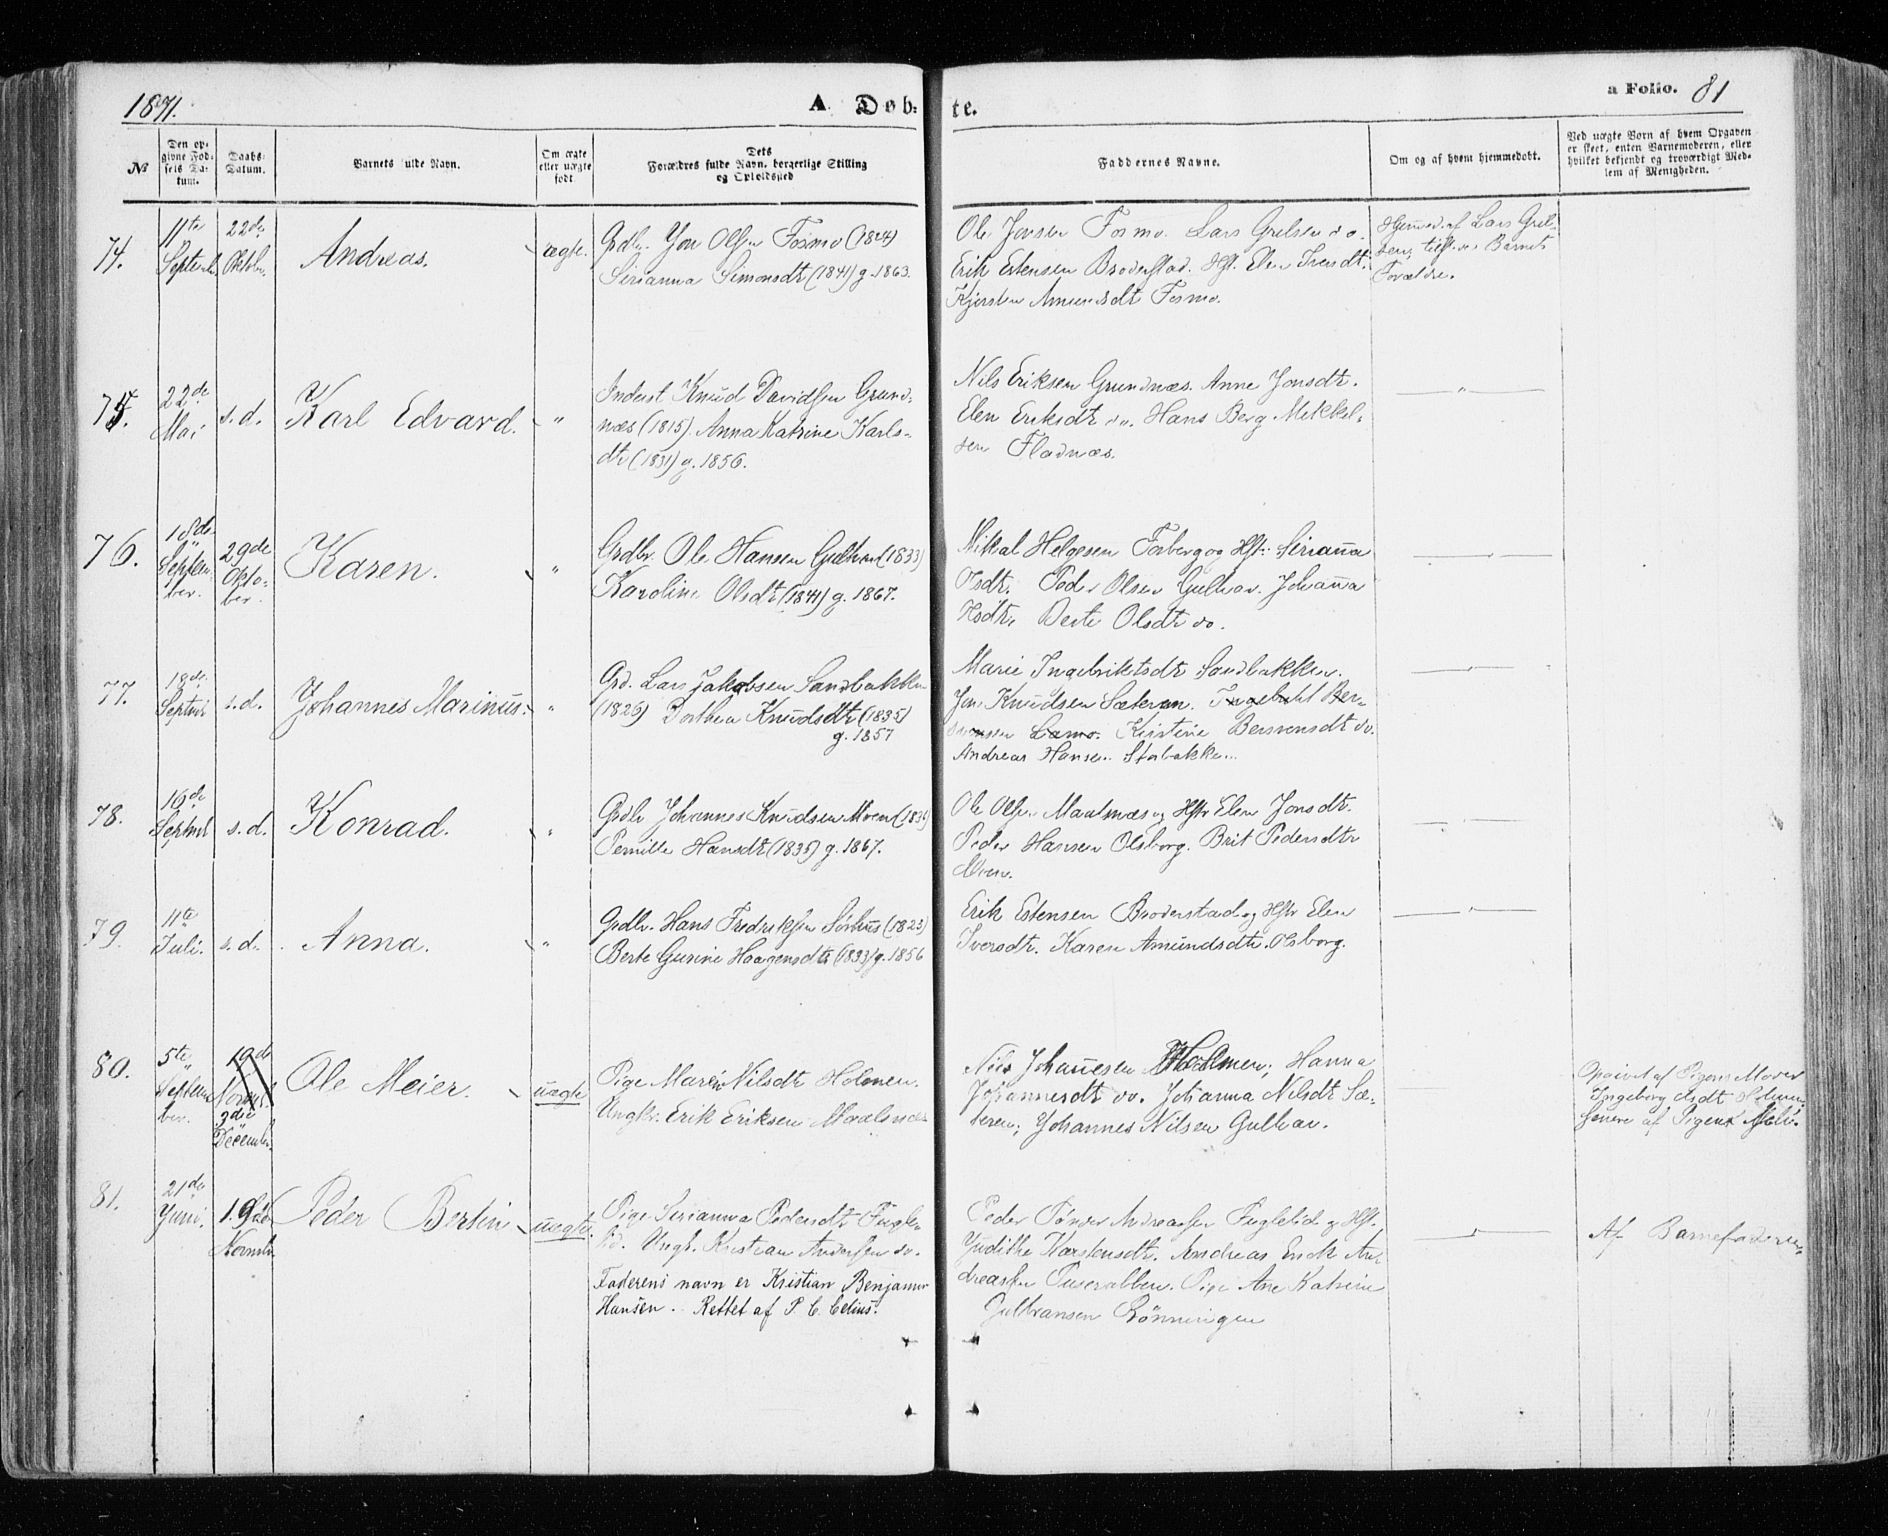 1871.
A Døb-
te.
a Folio. 81
No
Den op-
givne Fød-
sels Da-
tum.
Daabs-
Datum.
Barnets fulde Navn.
Om ægte
eller uægte
født.
Dets
Forældres fulde Navn, borgerlige Stilling
og Opholdssted
Faddernes Navne.
Om og af hvem hjemmedøbt.
Ved uægte Børn af hvem Opgaven
er skeet, enten Barnemoderen, eller
hvilket bekjendt og troværdigt Med-
lem af Menigheden.
74.
11te
Septemb
22de
Oktober
Andreas.
ægte.
Grdbr. Jon Olsen Fosmo (1844)
Serianna Simonsdt (1841) g. 1863.
Ole Jensen Fosmo. Lars Grelsen do.
Erik Estensen Broderstad. Hst. Elen Iversdt.
Kjersten Amundsdt Fosmo.
Hjemmed. af Lars Grel-
sen, Barnets
Forældre.
75.
22de
Mai
s.d.
Karl Edvard.
"
Inderst Knud Davidsen Grund-
næs (1815). Anna Katrine Karls-
dt (1831) g. 1856.
Nils Eriksen Grundnæs. Anne Jonsdt.
Elen Eriksdt do. Hans Berg Mikkel-
sen Fladnæs.
"
76.
18de
Septem-
ber.
29de
Okto-
ber.
Karen.
"
Grdbr. Ole Hansen Gulhav (1833)
Karoline Olsdt (1841) g. 1867.
Mikal Helgesen Fosberg og Hst: Serianna
Olsdt. Peder Olsen Gulhav. Johanna
Hsdt. Berte Olsdt do.
77.
18de
Septbr
s.d.
Johannes Marinus.
"
Grd. Lars Jakobsen Sandbakken
(1826) Dorthea Knudsdt (1835)
g. 1857
Marie Ingebriktsdt Sandbakken.
Jon Knudsen Sæteren. Ingebrikt Ber-
svensen Lamo. Kirstine Bersvensdt do.
Andreas Hansen Storbakken.
78.
16de
Septemb
s.d.
Konrad.
"
Grdbr Johannes Knudsen Moen (1835)
Pernille Hansdt (1835) g. 1867.
Ole Olsen Maalsnæs og Hstr Elen Jonsdt.
Peder Hansen Olsborg. Brit Pedersdtr
Moen.
79.
11te
Juli.
s.d.
Anna.
"
Grdbr. Hans Fredriksen Sørhus (1823)
Berte Gurine Haagensdtr (1833) g. 1856
Erik Estensen Broderstad og Hstr Elen
Iversdt. Karen Amundsdt. Olsborg.
80.
5te
Septem
ber.
19de
Novemb
3die
Decemb.
Ole Meier.
uægte
Pige Maren Nilsdt Holmen.
Ungkr. Erik Eriksen Maalsnæs
Nils Johannesen Holmen; Hanna
Johannesdt do. Johanna Nilsdt Sæ-
teren; Johannes Nilsen Gulhav.
Opgivet af Pigens Moder
Ingeborg Olsdt Holmen
senere af Pigen selv.
81.
21de
Juni.
19de
Novmbr
Peder Bertin
uægte.
Pige Serianna Pedersdt Fugle-
lid. Ungk. Kristian Andersen do.
Faderens navn er Kristian Benjamin
Hansen. Rettet af P. C. Celius.
Peder Tønder Andreassen Fuglelid og Hst.
Judithe Karstensdt. Andreas Enok An-
dreassen. Pige Ane Katrine
Gulbransen Rønningen
Af Barnefaderen.